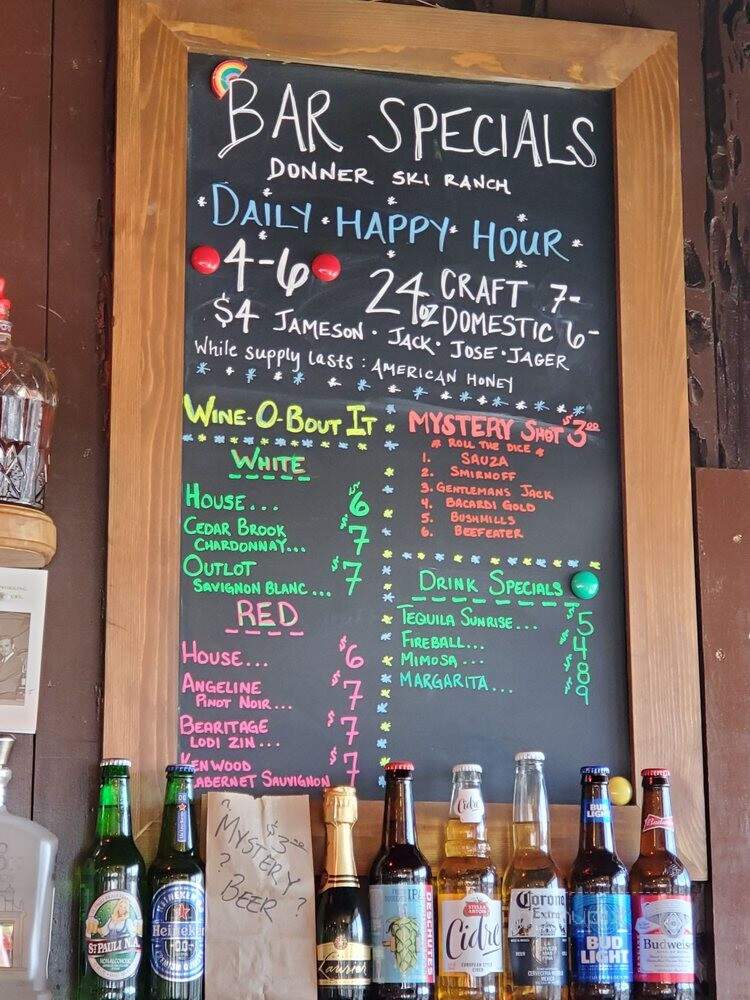 BAR SPECIALS
DONNER SKI RANCH
DAILY HAPPY HOUR
4-6
24oz CRAFT 7-
DOMESTIC 6-
$4 JAMESON · JACK · JOSE · JAGER
While supply lasts : AMERICAN HONEY
WINE-O-BOUT IT
WHITE
HOUSE... $6
CEDAR BROOK
CHARDONNAY... $7
OUTLOT
SAVIGNON BLANC... $7
RED
HOUSE... $6
ANGELINE
PINOT NOIR... $7
BEARITAGE
LODI ZIN... $7
KENWOOD
CABERNET SAUVIGNON $7
MYSTERY SHOT $3.00
ROLL THE DICE
1. SAUZA
2. SMIRNOFF
3. GENTLEMANS JACK
4. BACARDI GOLD
5. BUSHMILLS
6. BEEFEATER
DRINK SPECIALS
TEQUILA SUNRISE... $5
FIREBALL... $4
MIMOSA... $8
MARGARITA... $9
ST PAULI N.A.
NON ALCOHOLIC
HEINEKEN
Heineken
0.0
? $3.00
MYSTERY
? BEER ?
IPA
DESCHUTES
Cidre
STELLA ARTOIS
Cidre
EUROPEAN STYLE
CEDRE
Corona
Extra
BUD LIGHT
BUD
LIGHT
Budweiser